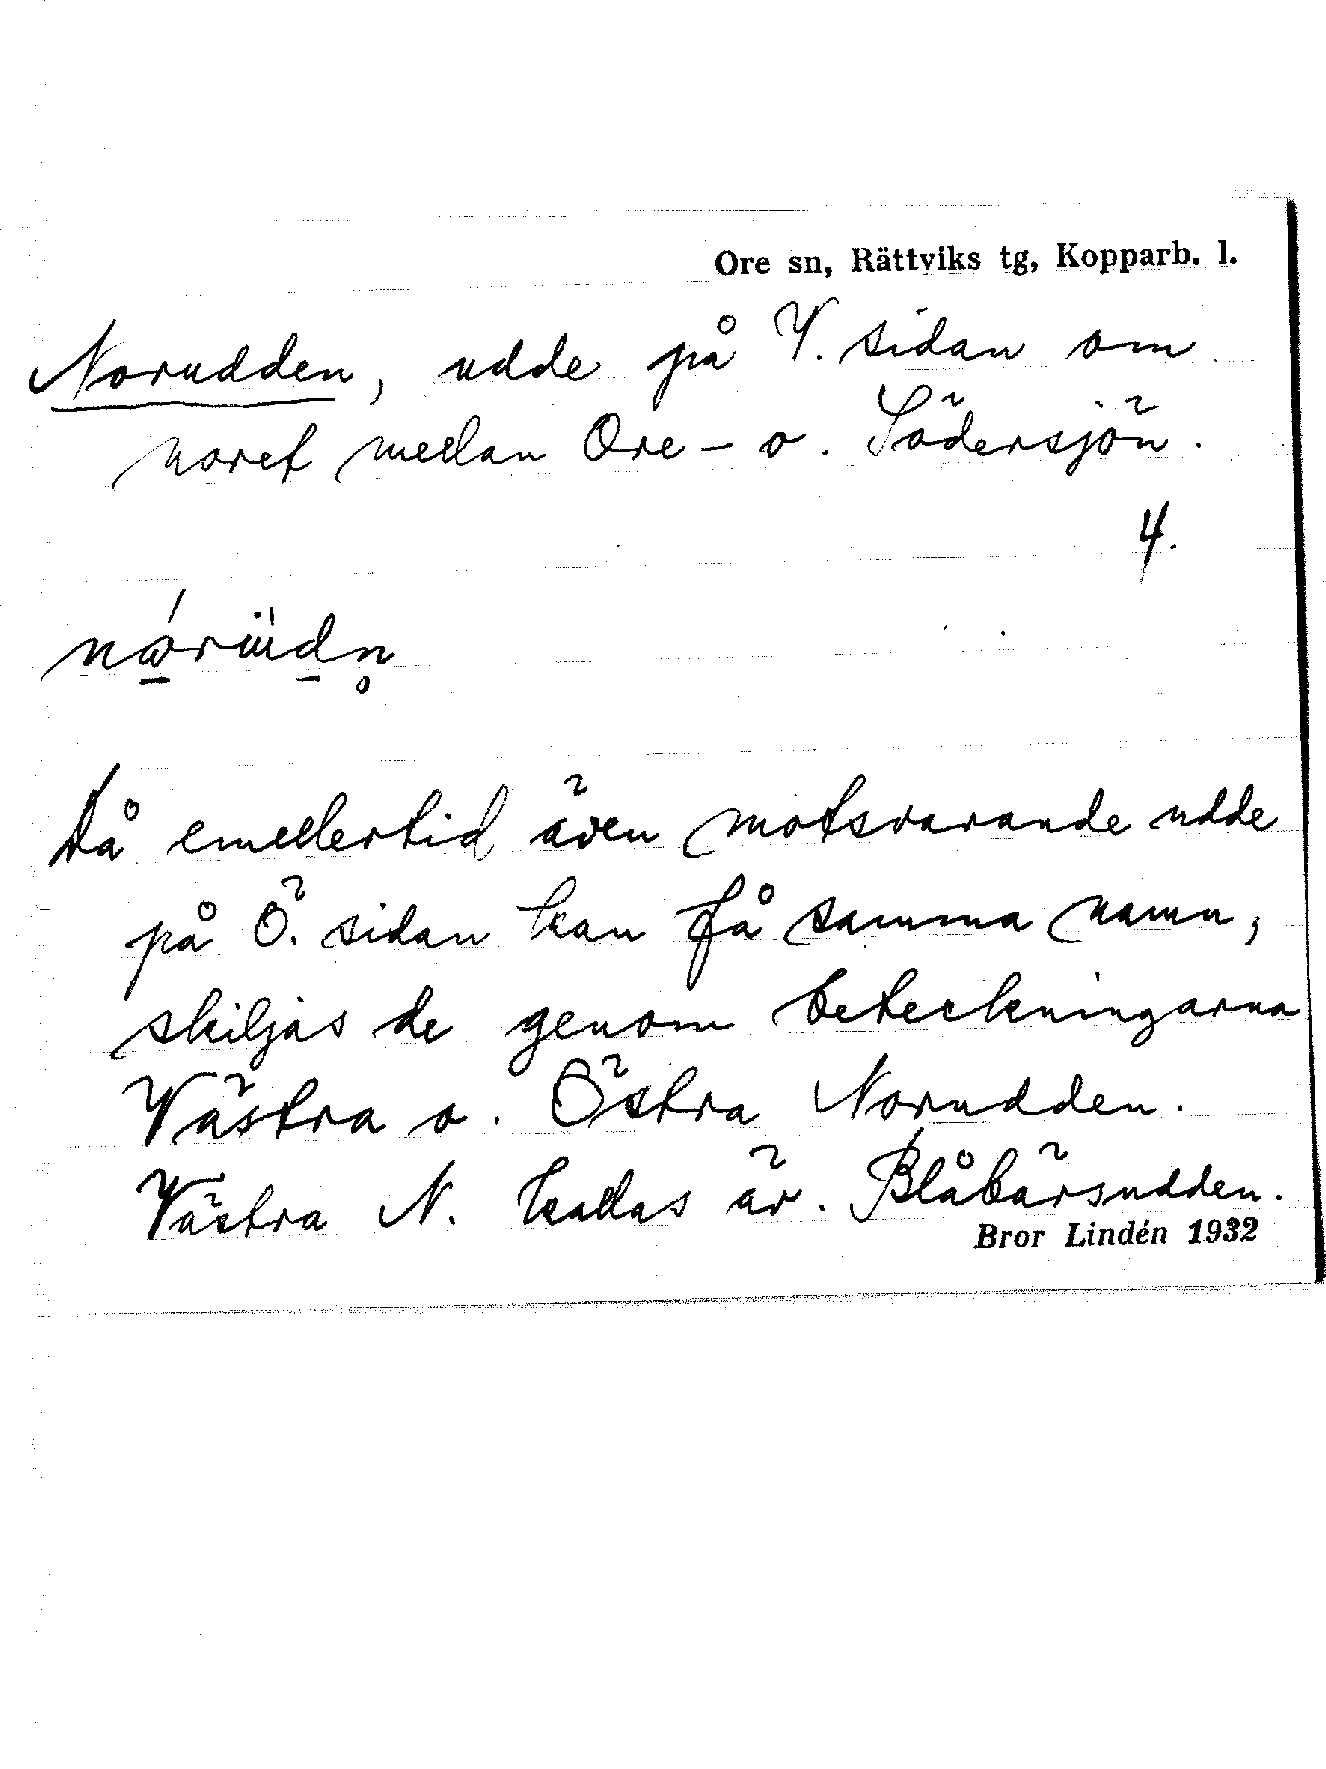 Ore sn, Rättviks tg, Kopparb. l.
Norudden, udde på V. sidan om
noret mellan Ore- o. Södersjön.
4.
Då emellertid även motsvarande udde
på Ö. sidan kan få samma namn,
skiljas de genom beteckningarna
Västra o. Östra Norudden.
Västra N. kallas äv. Blåbärsudden.
Bror Lindén 1932